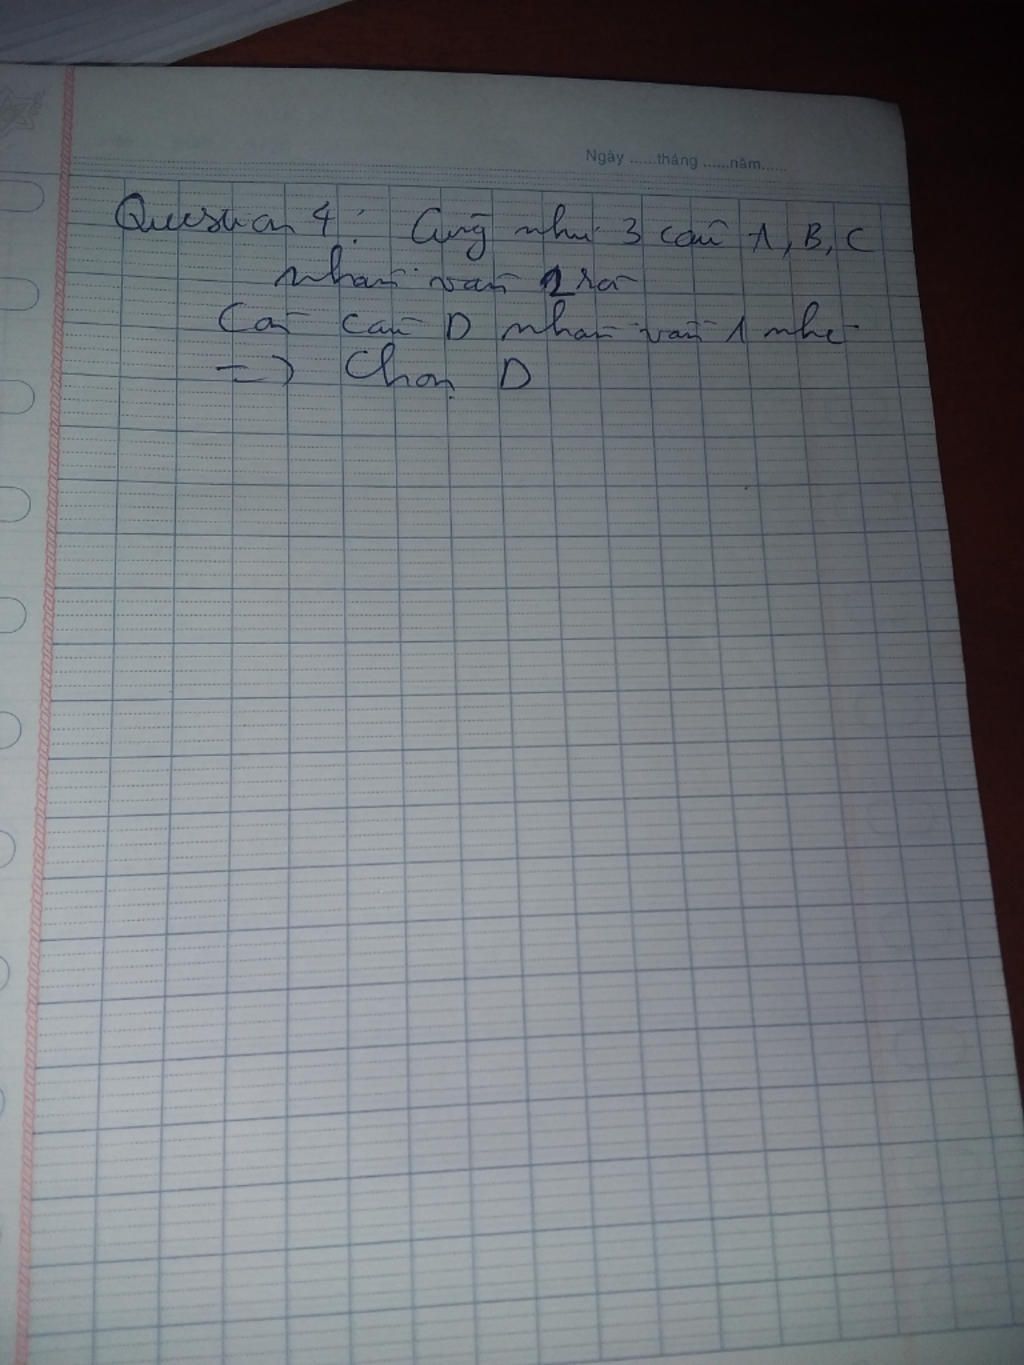 Ngày ......tháng ......năm......
Question 4: Cũng như 3 câu A, B, C
nhấn vần 2 rồi
Còn câu D nhấn vần 1 nhé
=> Chọn D